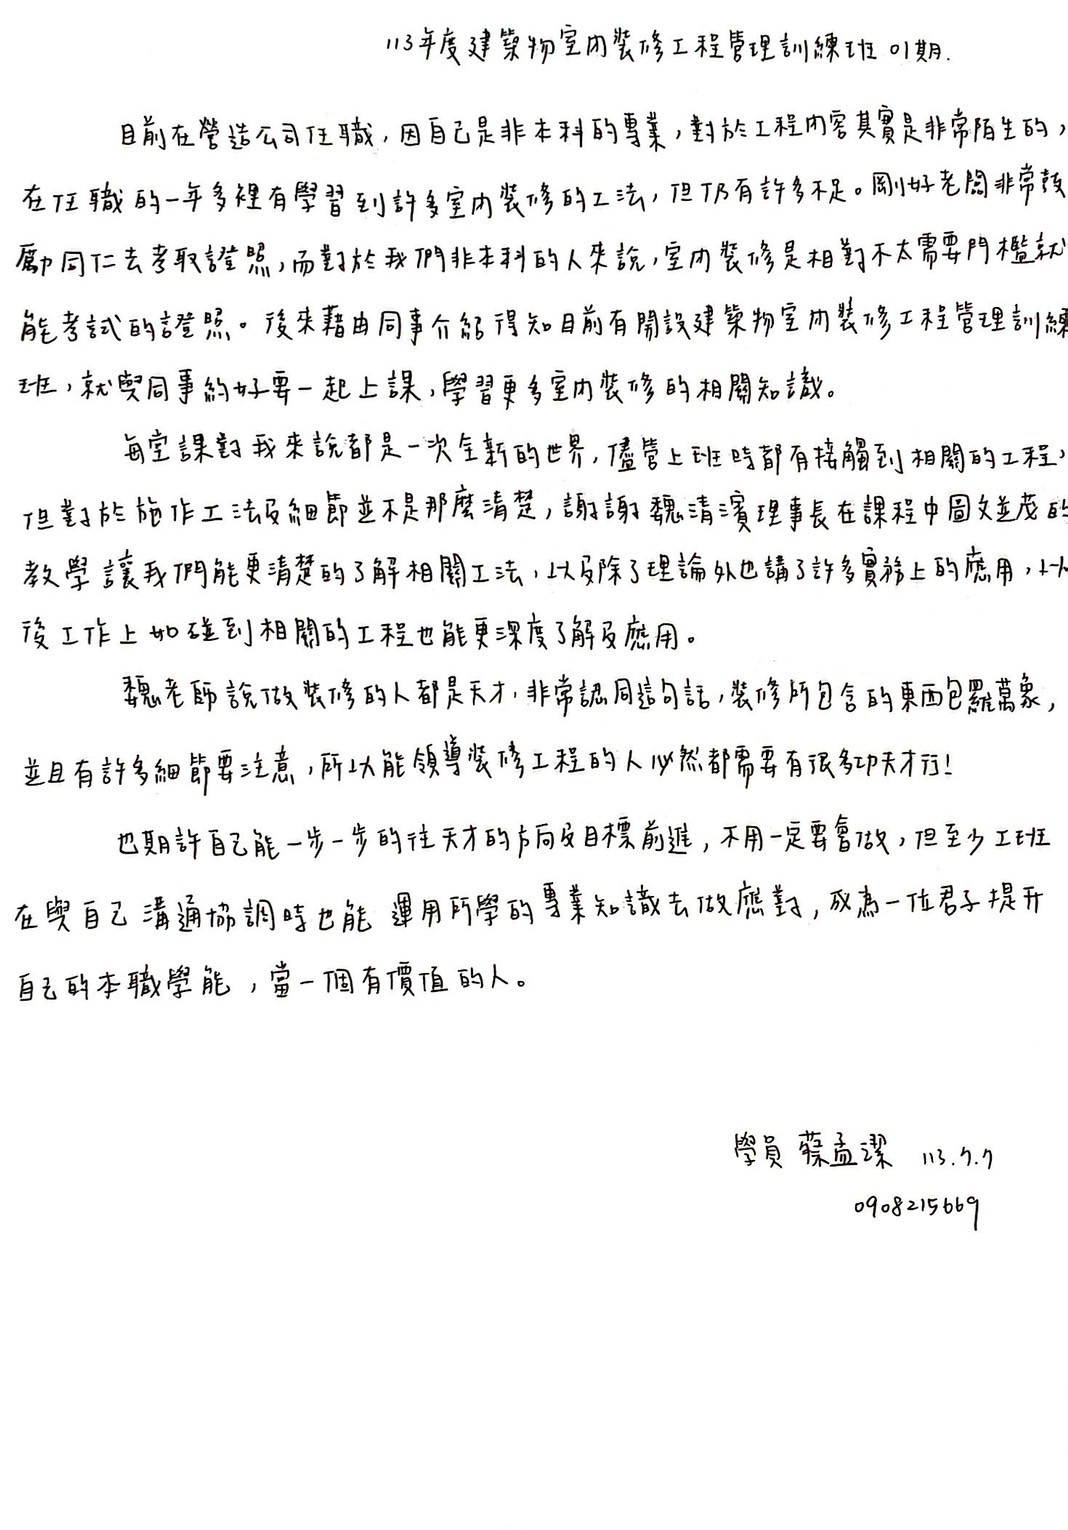 113年度建築物室內裝修工程管理訓練班 01期.
目前在營造公司任職，因自己是非本科的專業，對於工程內容其實是非常陌生的，
在任職的一年多裡有學習到許多室內裝修的工法，但仍有許多不足。剛好老闆非常鼓
勵同仁去考取證照，而對於我們非本科的人來說，室內裝修是相對不太需要門檻就
能考試的證照。後來藉由同事介紹得知目前有開設建築物室內裝修工程管理訓練
班，就與同事約好要一起上課，學習更多室內裝修的相關知識。
每堂課對我來說都是一次全新的世界，儘管上班時都有接觸到相關的工程，
但對於施作工法及細節並不是那麼清楚，謝謝魏清濱理事長在課程中圖文並茂的
教學讓我們能更清楚的了解相關工法，以及除了理論外也講了許多實務上的應用，以
後工作上如碰到相關的工程也能更深度了解及應用。
魏老師說做裝修的人都是天才，非常認同這句話，裝修所包含的東西包羅萬象，
並且有許多細節要注意，所以能領導裝修工程的人必然都需要有很多功夫才行！
也期許自己能一步一步的往天才的方向及目標前進，不用一定要會做，但至少工班
在與自己溝通協調時也能運用所學的專業知識去做應對，成為一位君子提升
自己的本職學能，當一個有價值的人。
學員 蔡孟潔 113.7.7
0908215669